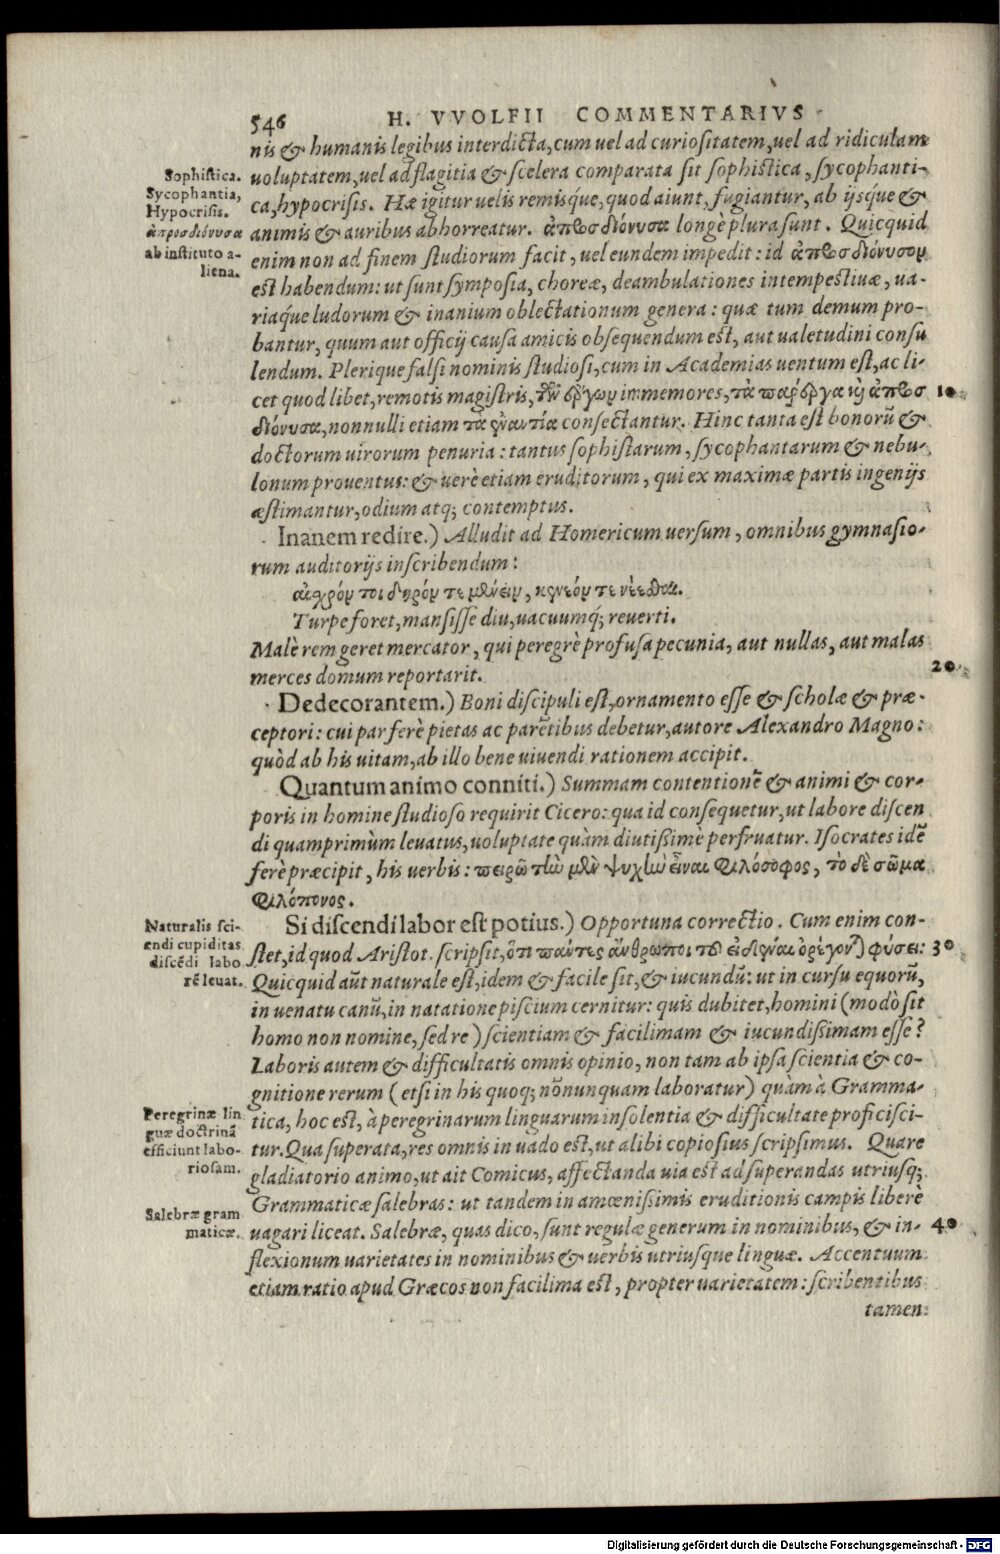 546 H. VVOLFII COMMENTARIVS
nis & humanis legibus interdicta, cum uel ad curiositatem, uel ad ridiculam
Sophistica. uoluptatem, uel ad flagitia & scelera comparata sit sophistica, sycophanti-
Sycophantia, Hypocrisis. ca, hypocrisis. Hæ igitur uelis remisq́ue, quod aiunt, fugiantur, ab ijsq́ue &
ἀπροσδιόνυσα animis & auribus abhorreatur. ἀπροσδιόνυσα longè plura sunt. Quicquid
ab instituto a- enim non ad finem studiorum facit, uel eundem impedit: id ἀπροσδιόνυσον
liena. est habendum: ut sunt symposia, choreæ, deambulationes intempestiuæ, ua-
riaque ludorum & inanium oblectationum genera: quæ tum demum pro-
bantur, quum aut officij causa amicis obsequendum est, aut ualetudini consu
lendum. Plerique falsi nominis studiosi, cum in Academias uentum est, ac li-
cet quod libet, remotis magistris, τῶν ἔργων immemores, τὰ πάρεργα καὶ ἀπροσ 10
διόνυσα, nonnulli etiam τὰ ἐναντία consectantur. Hinc tanta est bonorũ &
doctorum uirorum penuria: tantus sophistarum, sycophantarum & nebu-
lonum prouentus: & uerè etiam eruditorum, qui ex maximæ partis ingenijs
æstimantur, odium atq; contemptus.
Inanem redire.) Alludit ad Homericum uersum, omnibus gymnasio-
rum auditorijs inscribendum:
αἰσχρόν τοι δηρόν τε μένειν, κενεόν τε νέεσθαι.
Turpe foret, mansisse diu, uacuumq́; reuerti.
Malè rem geret mercator, qui peregrè profusa pecunia, aut nullas, aut malas
merces domum reportarit. 20
Dedecorantem.) Boni discipuli est, ornamento esse & scholæ & præ-
ceptori: cui par ferè pietas ac parẽtibus debetur, autore Alexandro Magno:
quòd ab his uitam, ab illo bene uiuendi rationem accipit.
Quantum animo conniti.) Summam contentionẽ & animi & cor-
poris in homine studioso requirit Cicero: qua id consequetur, ut labore discen
di quamprimùm leuatus, uoluptate quàm diutissimè perfruatur. Isocrates idẽ
ferè præcipit, his uerbis: πειρῶ τὴν μὲν ψυχὴν εἶναι φιλόσοφος, τὸ δὲ σῶμα
φιλόπονος.
Naturalis sci- Si discendi labor est potius.) Opportuna correctio. Cum enim con-
endi cupiditas stet, id quod Aristot. scripsit, ὅτι πάντες ἄνθρωποι τοῦ εἰδέναι ὀρέγονται φύσει: 30
discẽdi labo
rẽ leuat. Quicquid aũt naturale est, idem & facile sit, & iucundũ: ut in cursu equorũ,
in uenatu canũ, in natatione piscium cernitur: quis dubitet, homini (modò sit
homo non nomine, sed re) scientiam & facilimam & iucundissimam esse?
Laboris autem & difficultatis omnis opinio, non tam ab ipsa scientia & co-
gnitione rerum (etsi in his quoq; nõnunquam laboratur) quàm à Gramma-
Peregrinæ lin tica, hoc est, à peregrinarum linguarum insolentia & difficultate proficisci-
guæ doctrinã tur. Qua superata, res omnis in uado est, ut alibi copiosius scripsimus. Quare
efficiunt labo-
riosam. gladiatorio animo, ut ait Comicus, affectanda uia est ad superandas utriusq;
Grammaticæ salebras: ut tandem in amœnissimis eruditionis campis liberè
Salebræ gram
maticæ. uagari liceat. Salebræ, quas dico, sunt regulæ generum in nominibus, & in- 40
flexionum uarietates in nominibus & uerbis utriusque linguæ. Accentuum
etiam ratio apud Græcos non facilima est, propter uarietatem: scribentibus
tamen
Digitalisierung gefördert durch die Deutsche Forschungsgemeinschaft - DFG